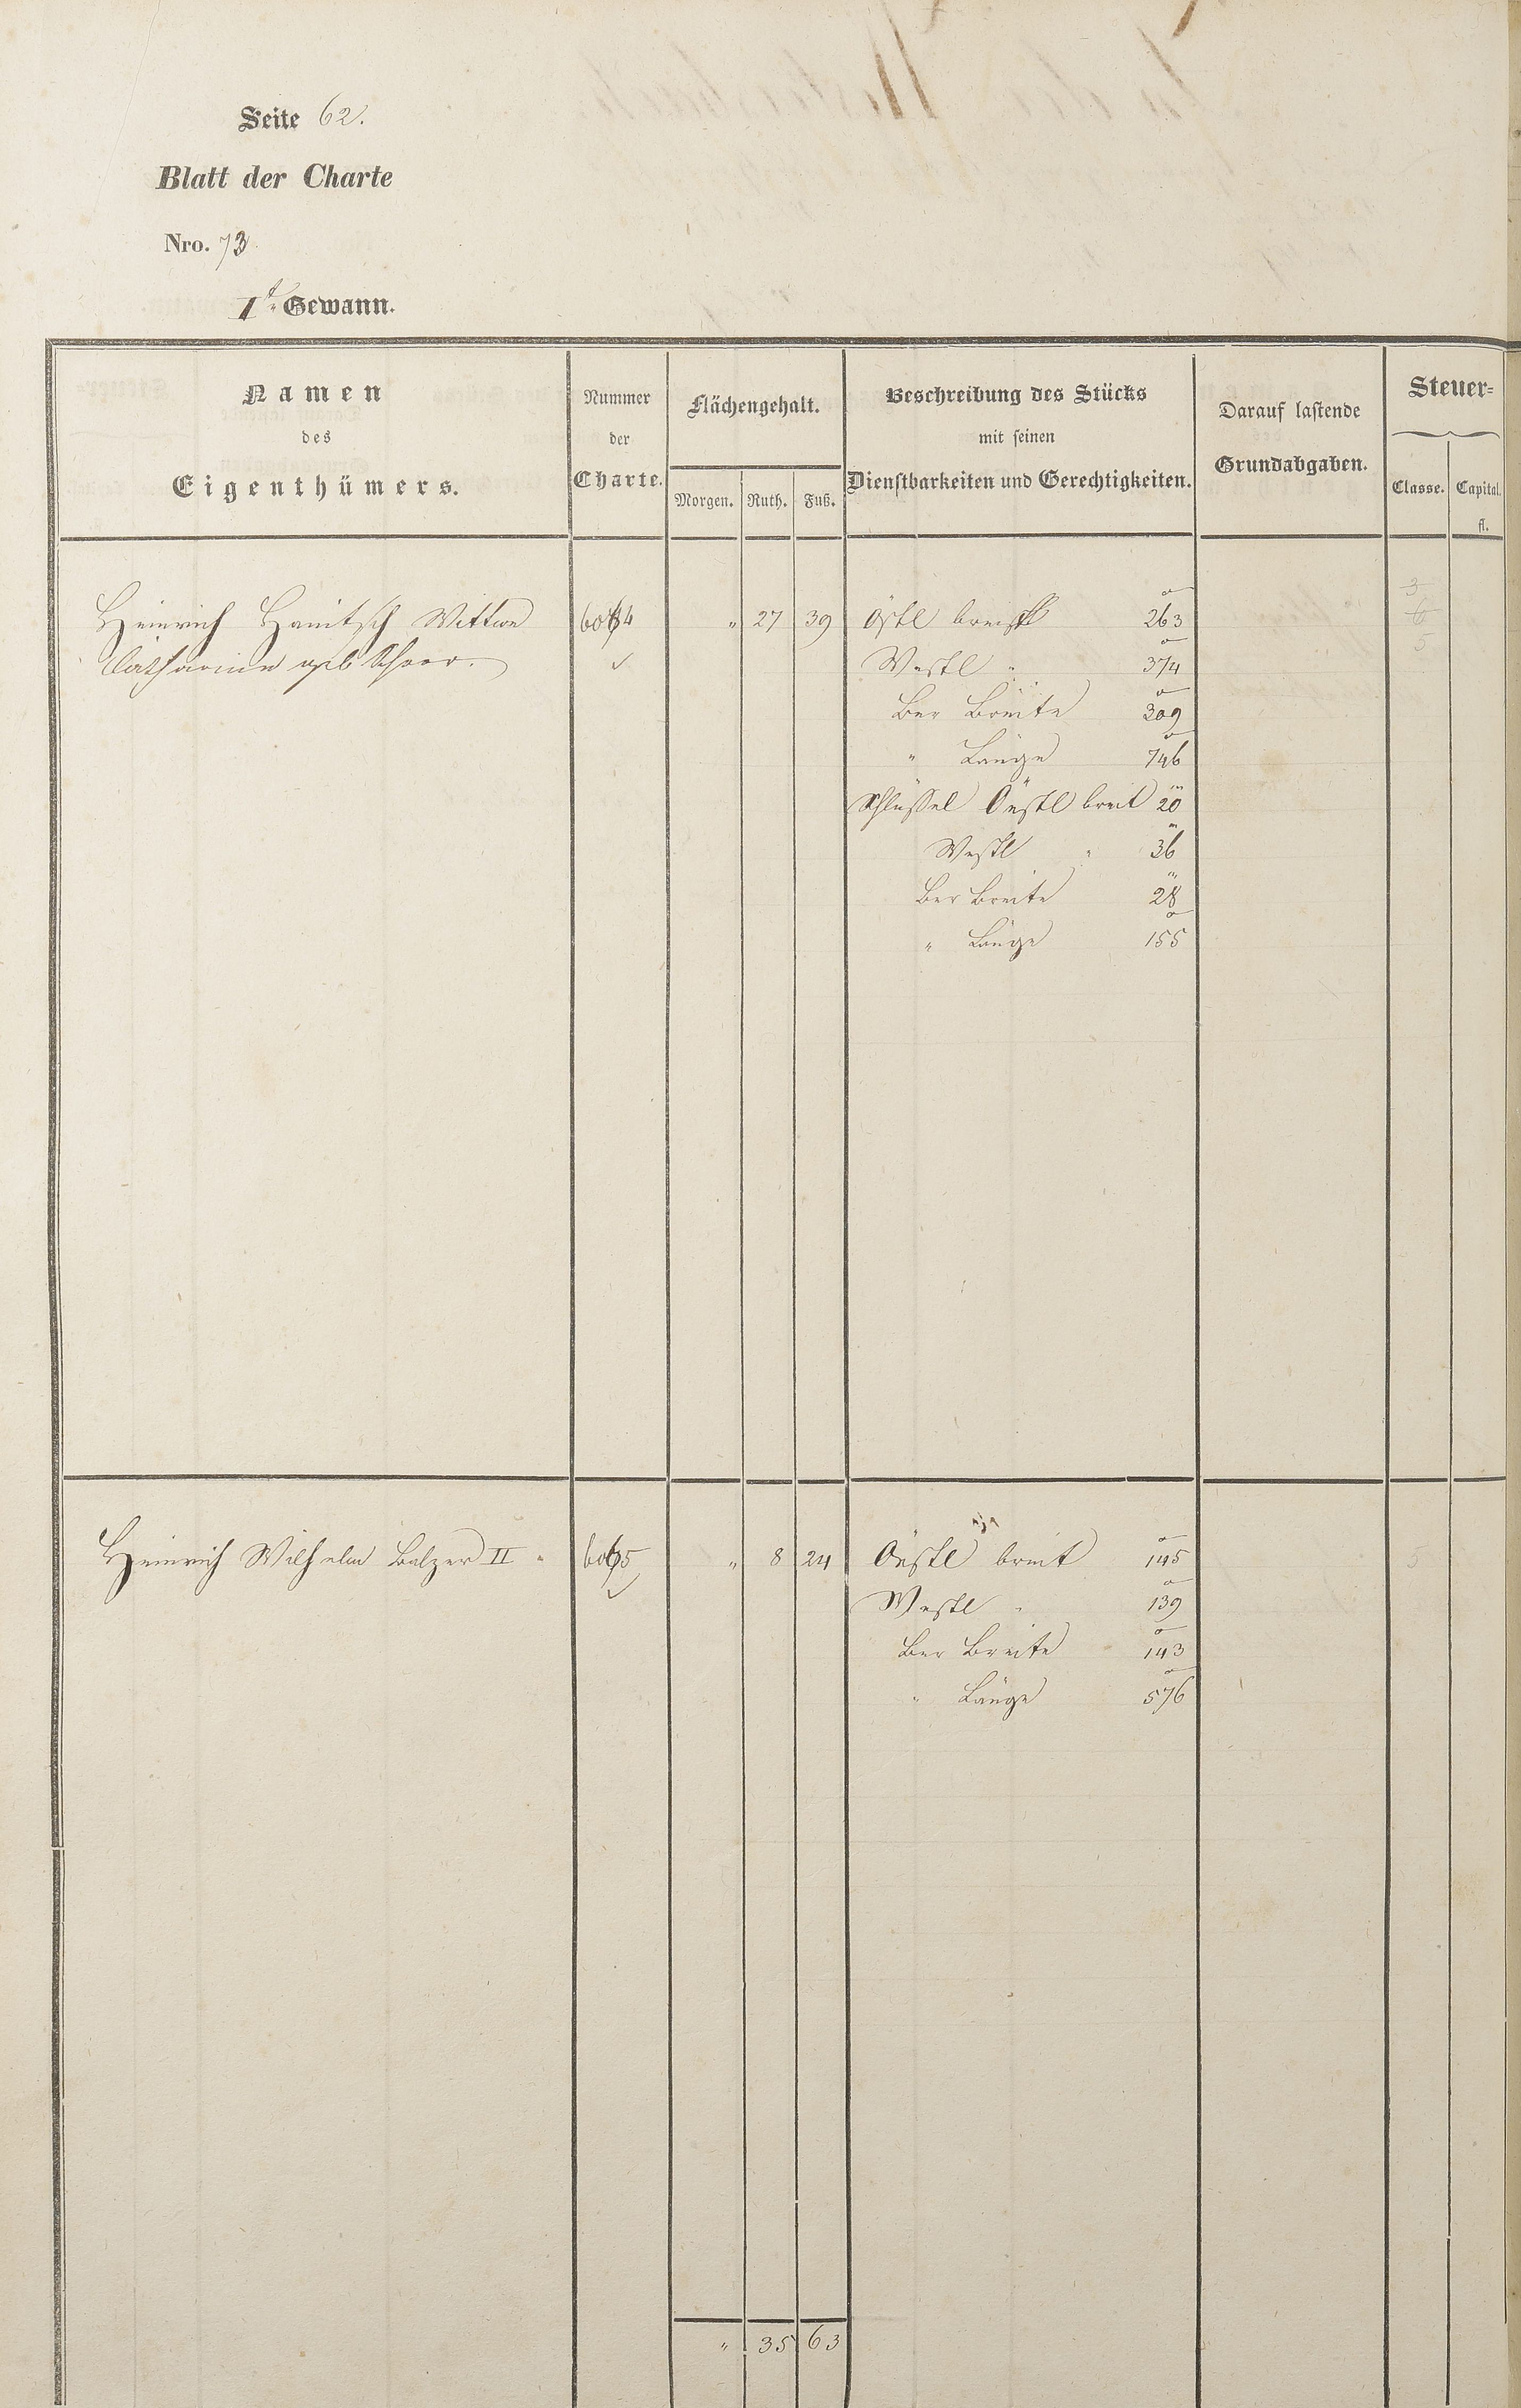 Seite 62.
Blatt der Charte
Nro. 73
I te Gewann.
Namen
des
Eigenthümers.
Nummer
der
Charte.
Flächengehalt.
Morgen. Ruth. Fuß.
Beschreibung des Stücks
mit seinen
Dienstbarkeiten und Gerechtigkeiten.
Darauf lastende
Grundabgaben.
Steuer=
Classe. Capital.
fl.
Heinrich Hanitsch Wittwe 6064 " 27 39 Östl breit 263 3
6
Catharine geb Schorr. Westl " 374 5
Ber Breite 309
" Länge 746
Schlüssel Oestl breit 20
Westl " 36
Ber Breite 28
" Länge 155
Heinrich Wilhelm Balzer II 6065 " 8 24 Oestl breit 145 5
Westl " 139
Ber Breite 143
" Länge 576
" 35 63